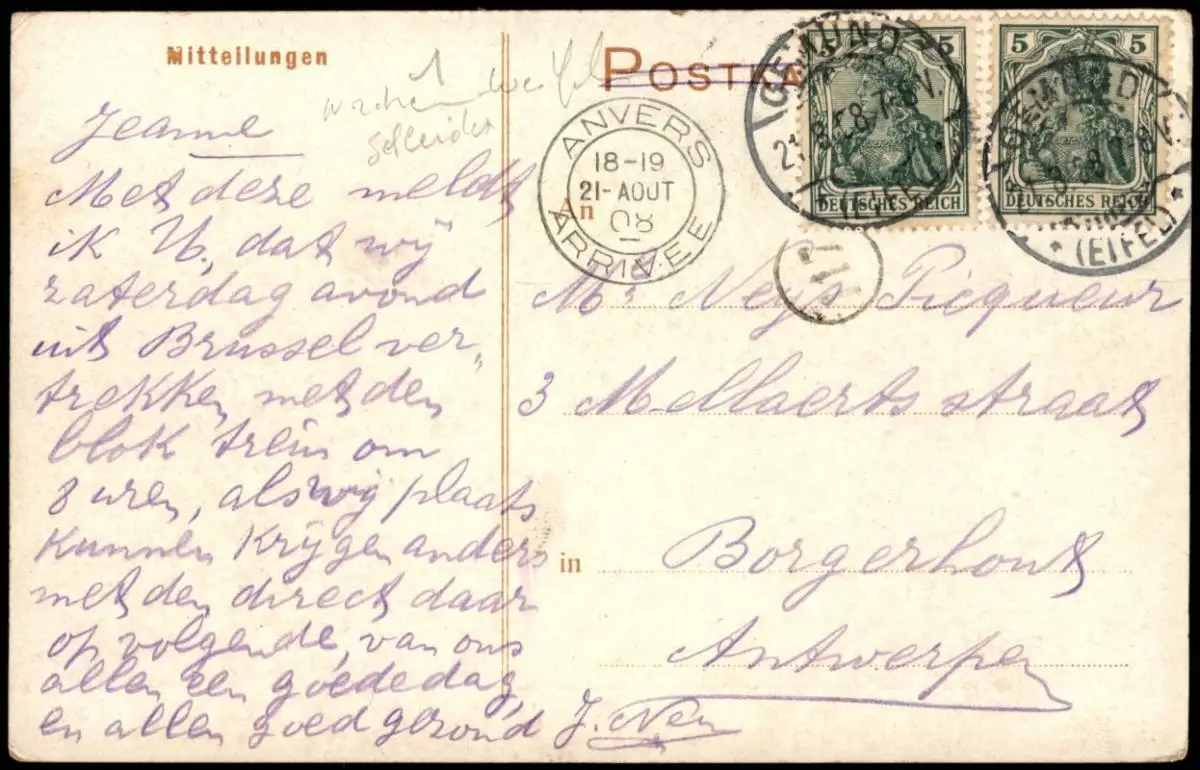 Mitteilungen
POSTKA
Jeanne
Met deze meldt
ik U, dat wij
zaterdag avond
uit Brussel ver„
trekken met den
blok trein om
8 uren, als wij plaats
kunnen krijgen anders
met den direct daar
op volgende, van ons
allen een goededag,
en allen goed gezond J. Neys
ANVERS
18-19
21-AOUT
08
ARRIVÉE
5 5
DEUTSCHES REICH
GEMÜND
21.8.08.7-8V.
(EIFEL)
5 5
DEUTSCHES REICH
GEMÜND
21.8.08.7-8V.
* (EIFEL) *
17
An
Mr Neys Picqueur
3 Mellaerts straat
in Borgerhout
Antwerpen